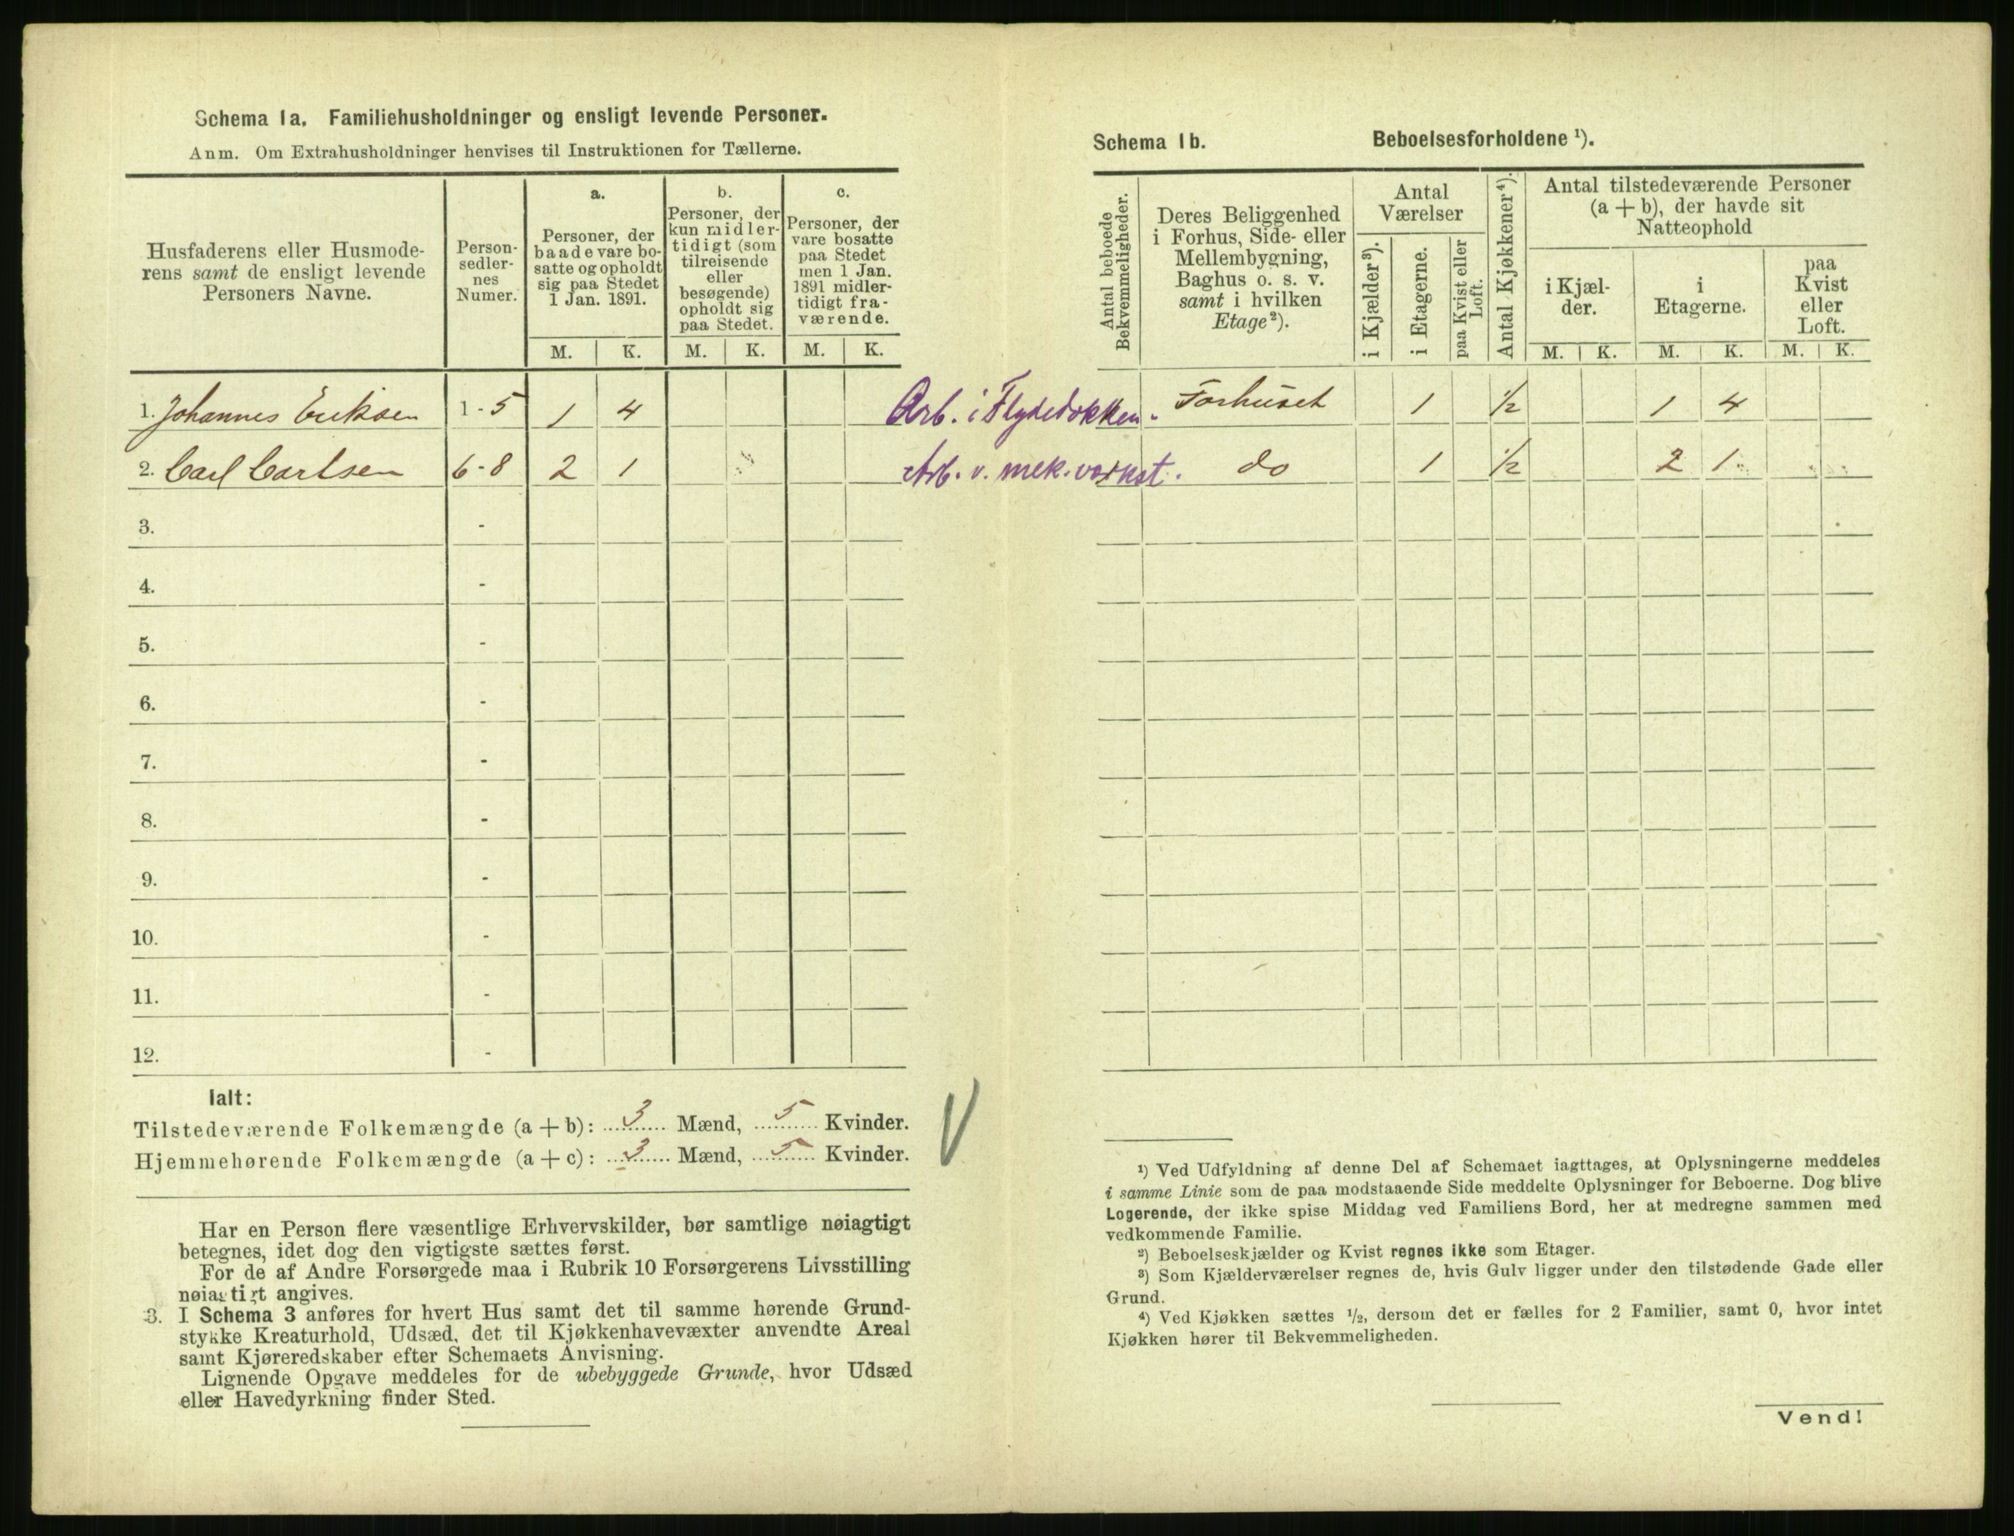 Schema 1a. Familiehusholdninger og ensligt levende Personer.
Anm. Om Extrahusholdninger henvises til Instruktionen for Tællerne.
Husfaderens eller Husmode-
rens samt de ensligt levende
Personers Navne.
Person-
sedler-
nes
Numer.
a.
Personer, der
baade vare bo-
satte og opholdt
sig paa Stedet
1 Jan. 1891.
b.
Personer, der
kun midler-
tidigt (som
tilreisende
eller
besøgende)
opholdt sig
paa Stedet.
c.
Personer, der
vare bosatte
paa Stedet
men 1 Jan.
1891 midler-
tidigt fra-
værende.
M. K. M. K. M. K.
1. Johannes Eriksen 1 - 5 1 4
2. Carl Carlsen 6 - 8 2 1
3. -
4. -
5. -
6. -
7. -
8. -
9. -
10. -
11. -
12. -
Ialt:
Tilstedeværende Folkemængde (a + b): 3 Mænd, 5 Kvinder.
Hjemmehørende Folkemængde (a + c): 3 Mænd, 5 Kvinder.
V
Har en Person flere væsentlige Erhvervskilder, bør samtlige nøiagtigt
betegnes, idet dog den vigtigste sættes først.
For de af Andre Forsørgede maa i Rubrik 10 Forsørgerens Livsstilling
nøiagtigt angives.
3. I Schema 3 anføres for hvert Hus samt det til samme hørende Grund-
stykke Kreaturhold, Udsæd, det til Kjøkkenhavevæxter anvendte Areal
samt Kjøreredskaber efter Schemaets Anvisning.
Lignende Opgave meddeles for de ubebyggede Grunde, hvor Udsæd
eller Havedyrkning finder Sted.
Schema 1b. Beboelsesforholdene ¹).
Antal beboede
Bekvemmeligheder.
Deres Beliggenhed
i Forhus, Side- eller
Mellembygning,
Baghus o. s. v.
samt i hvilken
Etage²).
Antal
Værelser
i Kjælder³).
i Etagerne.
paa Kvist eller
Loft.
Antal Kjøkkener⁴).
Antal tilstedeværende Personer
(a + b), der havde sit
Natteophold
i Kjæl-
der.
i
Etagerne.
paa
Kvist
eller
Loft.
M. K. M. K. M. K.
Arb. i Flydedokken. Forhuset 1 ½ 1 4
Arb. v. mek. verkst. do 1 ½ 2 1
¹) Ved Udfyldning af denne Del af Schemaet iagttages, at Oplysningerne meddeles
i samme Linie som de paa modstaaende Side meddelte Oplysninger for Beboerne. Dog blive
Logerende, der ikke spise Middag ved Familiens Bord, her at medregne sammen med
vedkommende Familie.
²) Beboelseskjælder og Kvist regnes ikke som Etager.
³) Som Kjælderværelser regnes de, hvis Gulv ligger under den tilstødende Gade eller
Grund.
⁴) Ved Kjøkken sættes ½, dersom det er fælles for 2 Familier, samt 0, hvor intet
Kjøkken hører til Bekvemmeligheden.
Vend!